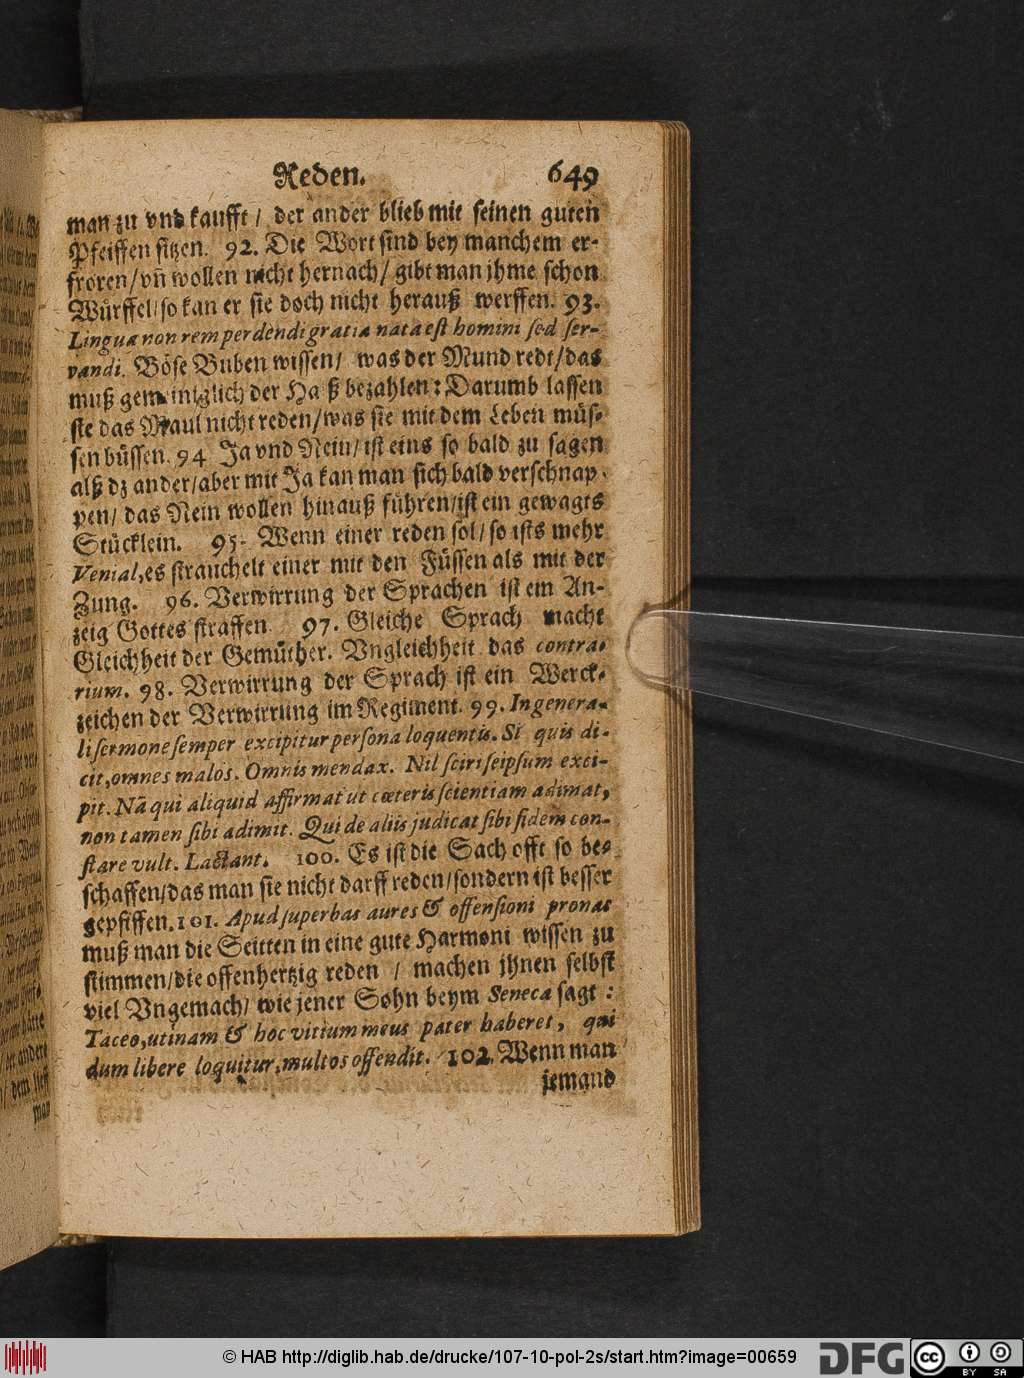 Reden. 649
man zu vnd kaufft / der ander blieb mit seinen guten
Pfeiffen sitzen. 92. Die Wort sind bey manchem er-
froren/vñ wollen nicht hernach/ gibt man jhme schon
Würffel/so kan er sie doch nicht herauß werffen. 93.
Lingua non rem perdendi gratia nata est homini sed ser-
vandi. Böse Buben wissen/ was der Mund redt/das
muß gemeiniglich der Halß bezahlen: Darumb lassen
sie das Maul nicht reden/was sie mit dem Leben müs-
sen büssen. 94 Ja vnd Nein/ ist eins so bald zu sagen
alß dz ander/aber mit Ja kan man sich bald verschnap-
pen/ das Nein wollen hinauß führen/ist ein gewagts
Stücklein. 95. Wenn einer reden sol/ so ists mehr
Venial, es strauchelt einer mit den Füssen als mit der
Zung. 96. Verwirrung der Sprachen ist ein An-
zeig Gottes straffen 97. Gleiche Sprach macht
Gleichheit der Gemüther. Vngleichheit das contra-
rium. 98. Verwirrung der Sprach ist ein Werck-
zeichen der Verwirrung im Regiment. 99. In genera-
li sermone semper excipitur persona loquentis. Si quis di-
cit, omnes malos. Omnis mendax. Nil sciri seipsum exci-
pit. Nã qui aliquid affirmat ut cœteris scientiam adimat,
non tamen sibi adimit. Qui de aliis judicat sibi fidem con-
stare vult. Lactant. 100. Es ist die Sach offt so be-
schaffen/das man sie nicht darff reden/sondern ist besser
gepfiffen. 101. Apud superbas aures & offensioni pronas
muß man die Seitten in eine gute Harmoni wissen zu
stimmen/die offenhertzig reden / machen jhnen selbst
viel Vngemach/ wie jener Sohn beym Seneca sagt :
Taceo, utinam & hoc vitium meus pater haberet, qui
dum libere loquitur, multos offendit. 102. Wenn man
jemand
© HAB http://diglib.hab.de/drucke/107-10-pol-2s/start.htm?image=00659
DFG
cc BY SA